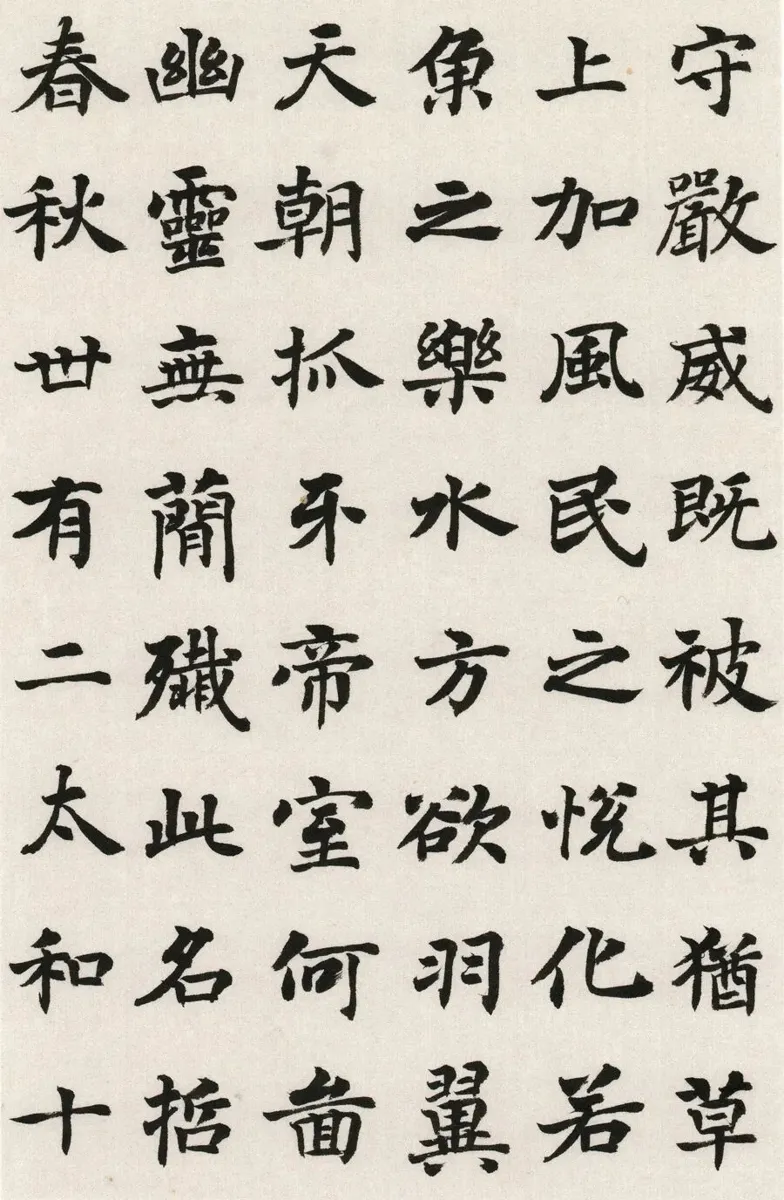 守嚴威既被其猶草
上加風民之悅化若
魚之樂水方欲羽翼
天朝抓牙帝室何啚
幽靈無簡殲此名哲
春秋卌有二太和十